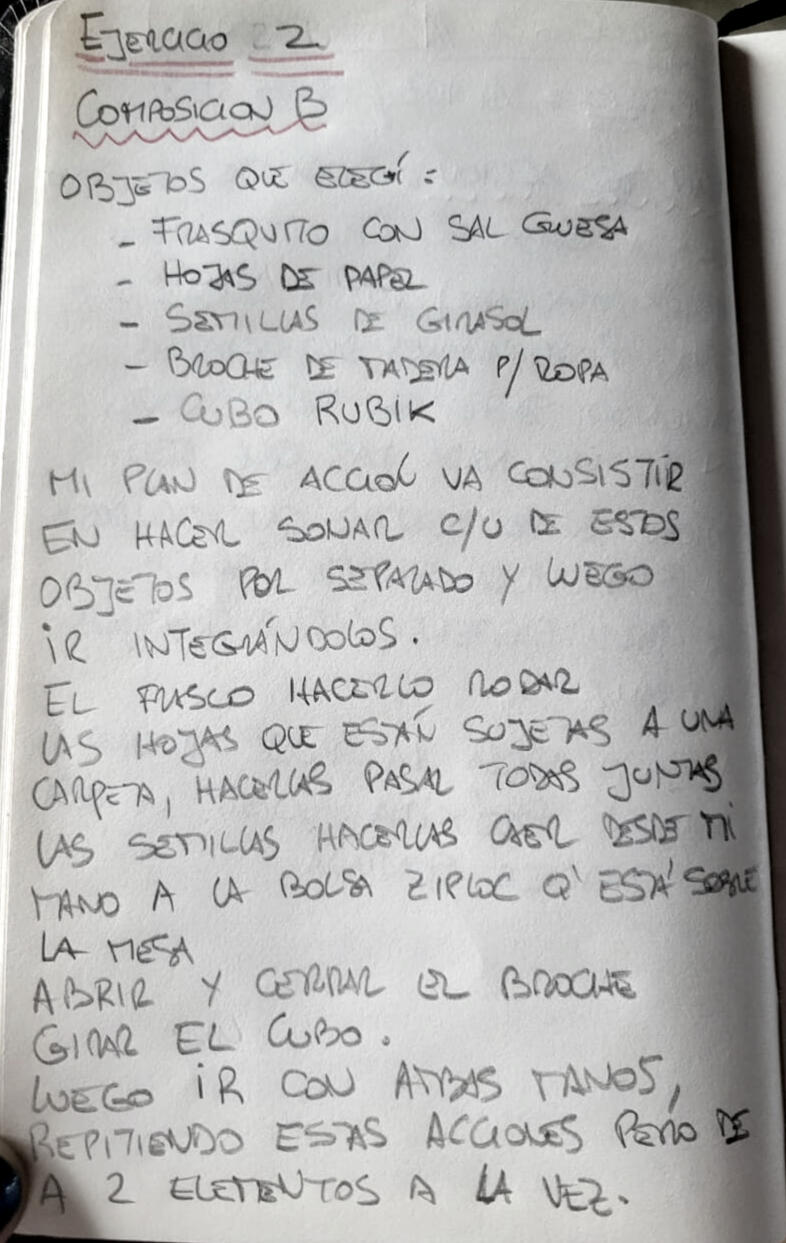 EJERCICIO 2
COMPOSICION B
OBJETOS QUE ELEGÍ:
- FRASQUITO CON SAL GRUESA
- HOJAS DE PAPEL
- SEMILLAS DE GIRASOL
- BROCHE DE MADERA P/ ROPA
- CUBO RUBIK
MI PLAN DE ACCIÓN VA CONSISTIR
EN HACER SONAR C/U DE ESTOS
OBJETOS POR SEPARADO Y LUEGO
IR INTEGRÁNDOLOS.
EL FRASCO HACERLO RODAR
LAS HOJAS QUE ESTÁN SUJETAS A UNA
CARPETA, HACERLAS PASAR TODAS JUNTAS
LAS SEMILLAS HACERLAS CAER DESDE MI
MANO A LA BOLSA ZIPLOC Q' ESTÁ SOBRE
LA MESA
ABRIR Y CERRAR EL BROCHE
GIRAR EL CUBO.
LUEGO IR CON AMBAS MANOS,
REPITIENDO ESTAS ACCIONES PERO DE
A 2 ELEMENTOS A LA VEZ.